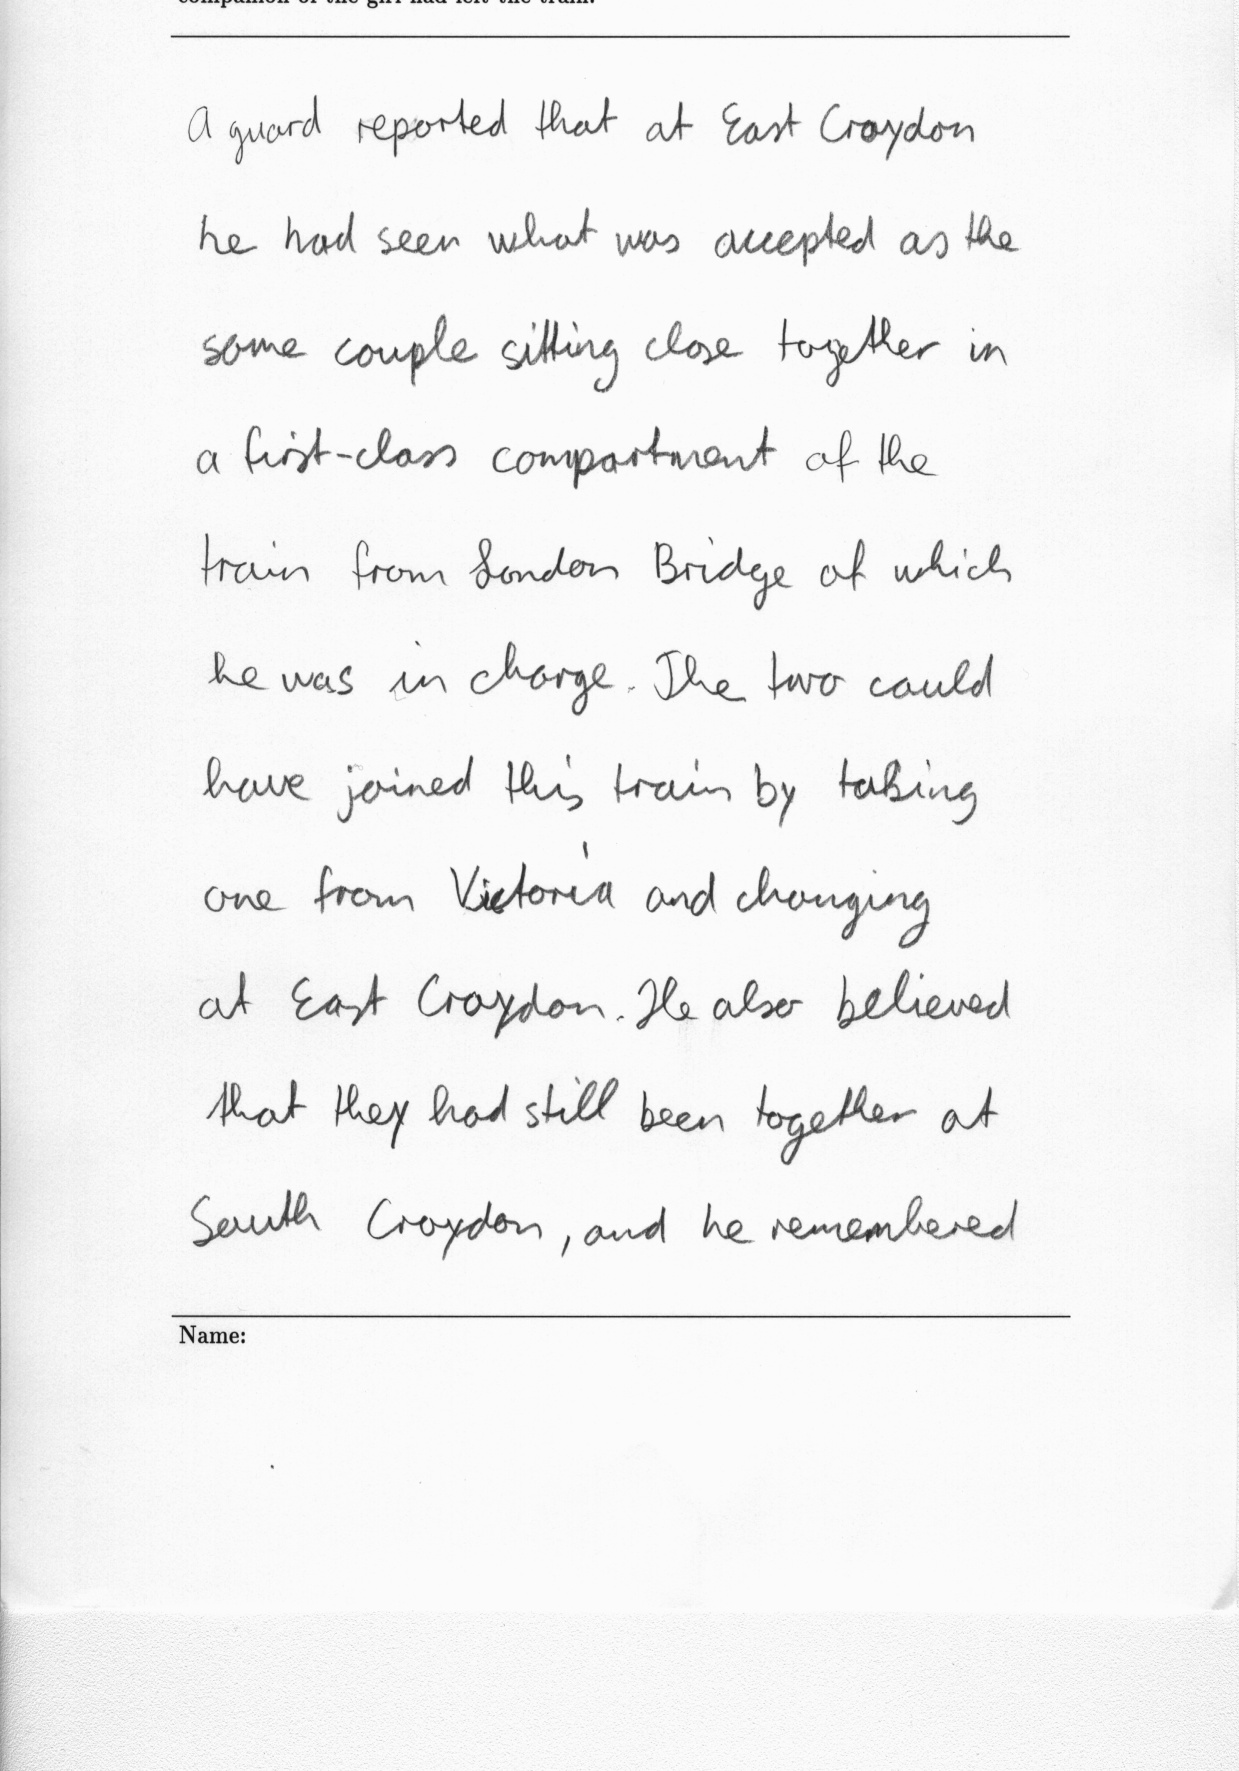 companion of the girl had left the train.
A guard reported that at East Croydon
he had seen what was accepted as the
same couple sitting close together in
a first-class compartment of the
train from London Bridge of which
he was in charge. The two could
have joined this train by taking
one from Victoria and changing
at East Croydon. He also believed
that they had still been together at
South Croydon, and he remembered
Name: